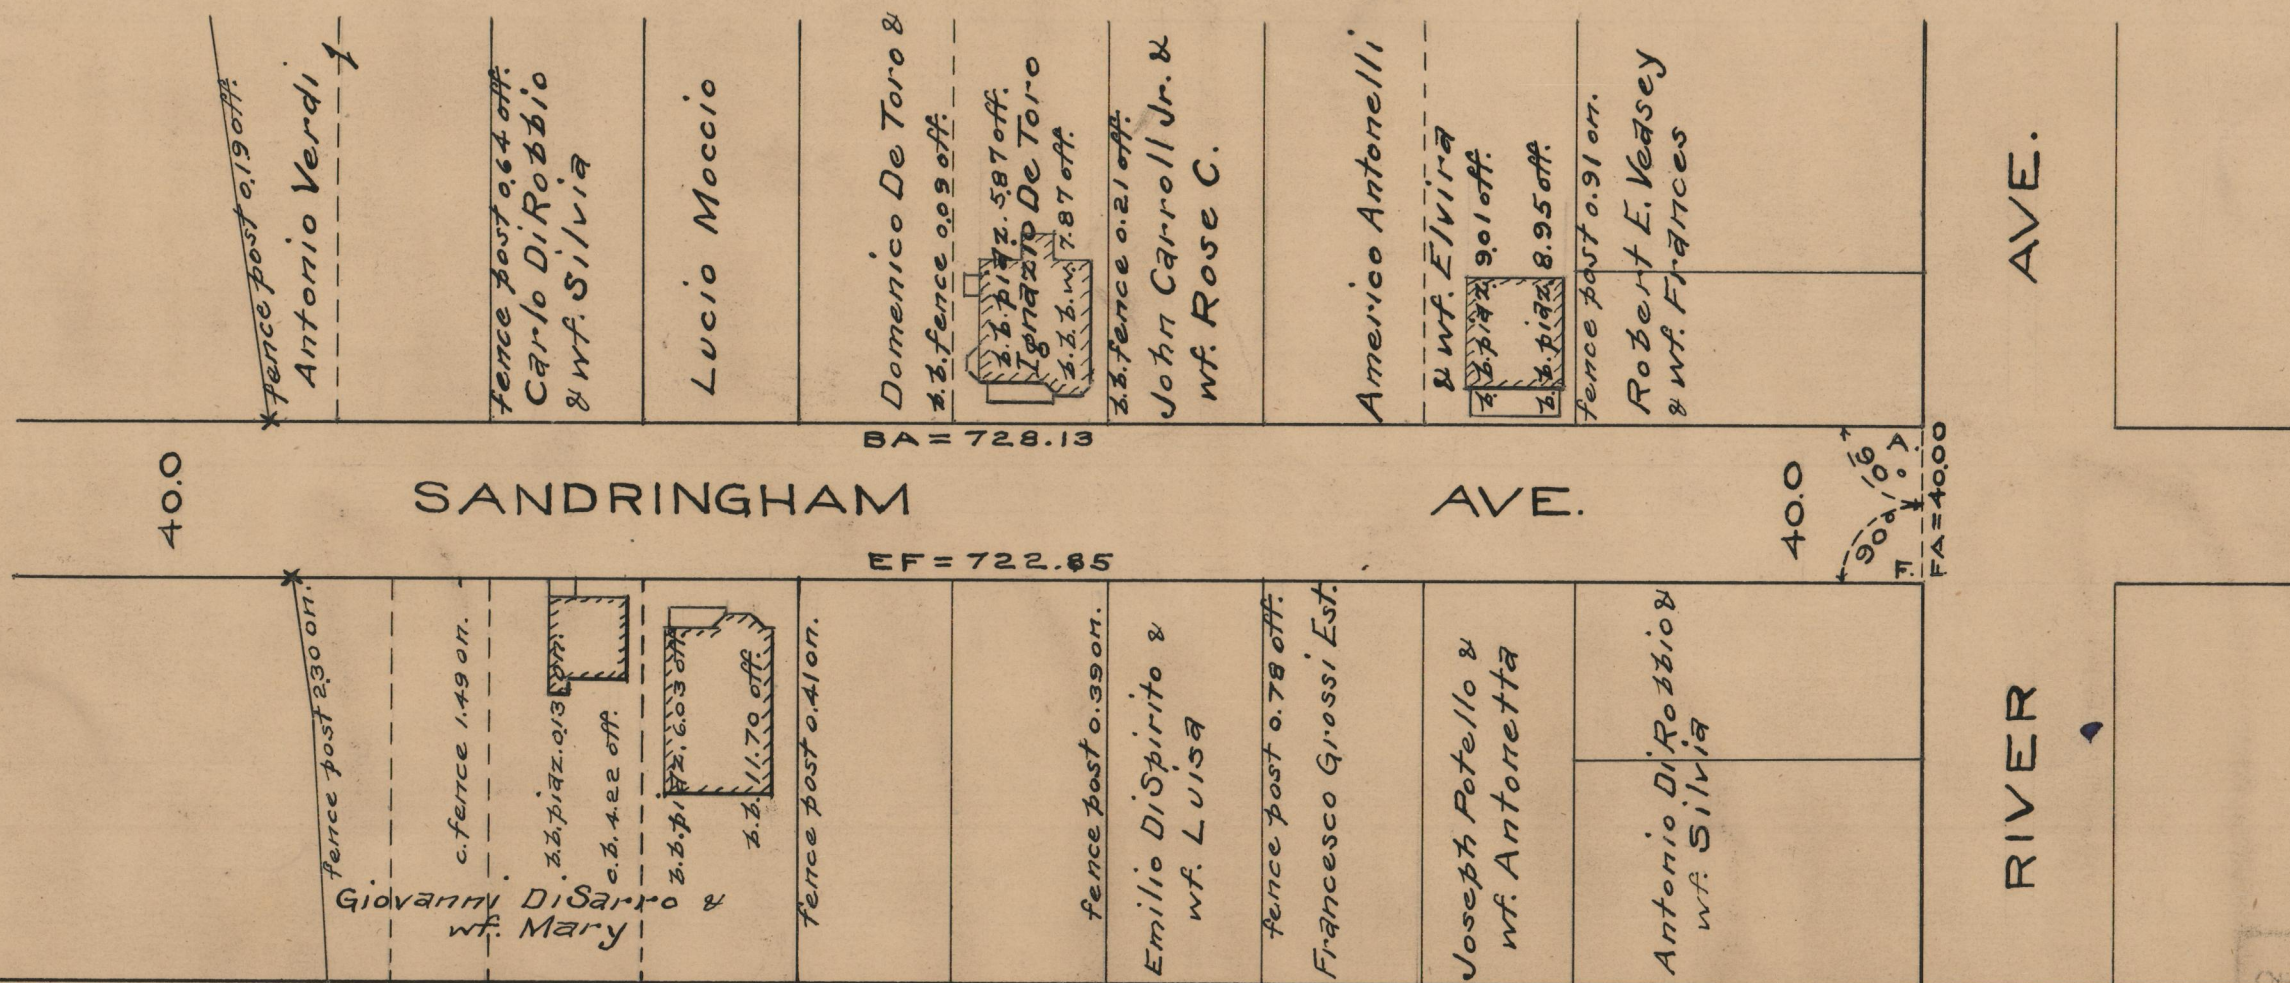 fence post 0.19 off.
Antonio Verdi
fence post 0.64 off.
Carlo DiRobbio
& wf. Silvia
Lucio Moccio
Domenico De Toro &
b.b. fence 0.09 off.
b.b. piaz. 5.87 off.
Ignazio De Toro
b.b. w. 7.87 off.
b.b. fence 0.21 off.
John Carroll Jr. &
wf. Rose C.
Americo Antonelli
& wf. Elvira
b.b. piaz. 9.01 off.
b.b. piaz. 8.95 off.
fence post 0.91 on.
Robert E. Veasey
& wf. Frances
BA = 728.13
40.0
SANDRINGHAM AVE.
40.0
A
F.
FA = 40.00
EF = 722.85
RIVER AVE.
fence post 2.30 on.
c. fence 1.49 on.
b.b. piaz. 0.13 on.
c.b. 4.22 off.
b.b. piaz. 6.03 off.
b.b. 11.70 off.
Giovanni DiSarro &
wf. Mary
fence post 0.41 on.
fence post 0.39 on.
Emilio DiSpirito &
wf. Luisa
fence post 0.78 off.
Francesco Grossi Est.
Joseph Potello &
wf. Antonetta
Antonio DiRobbio &
wf. Silvia